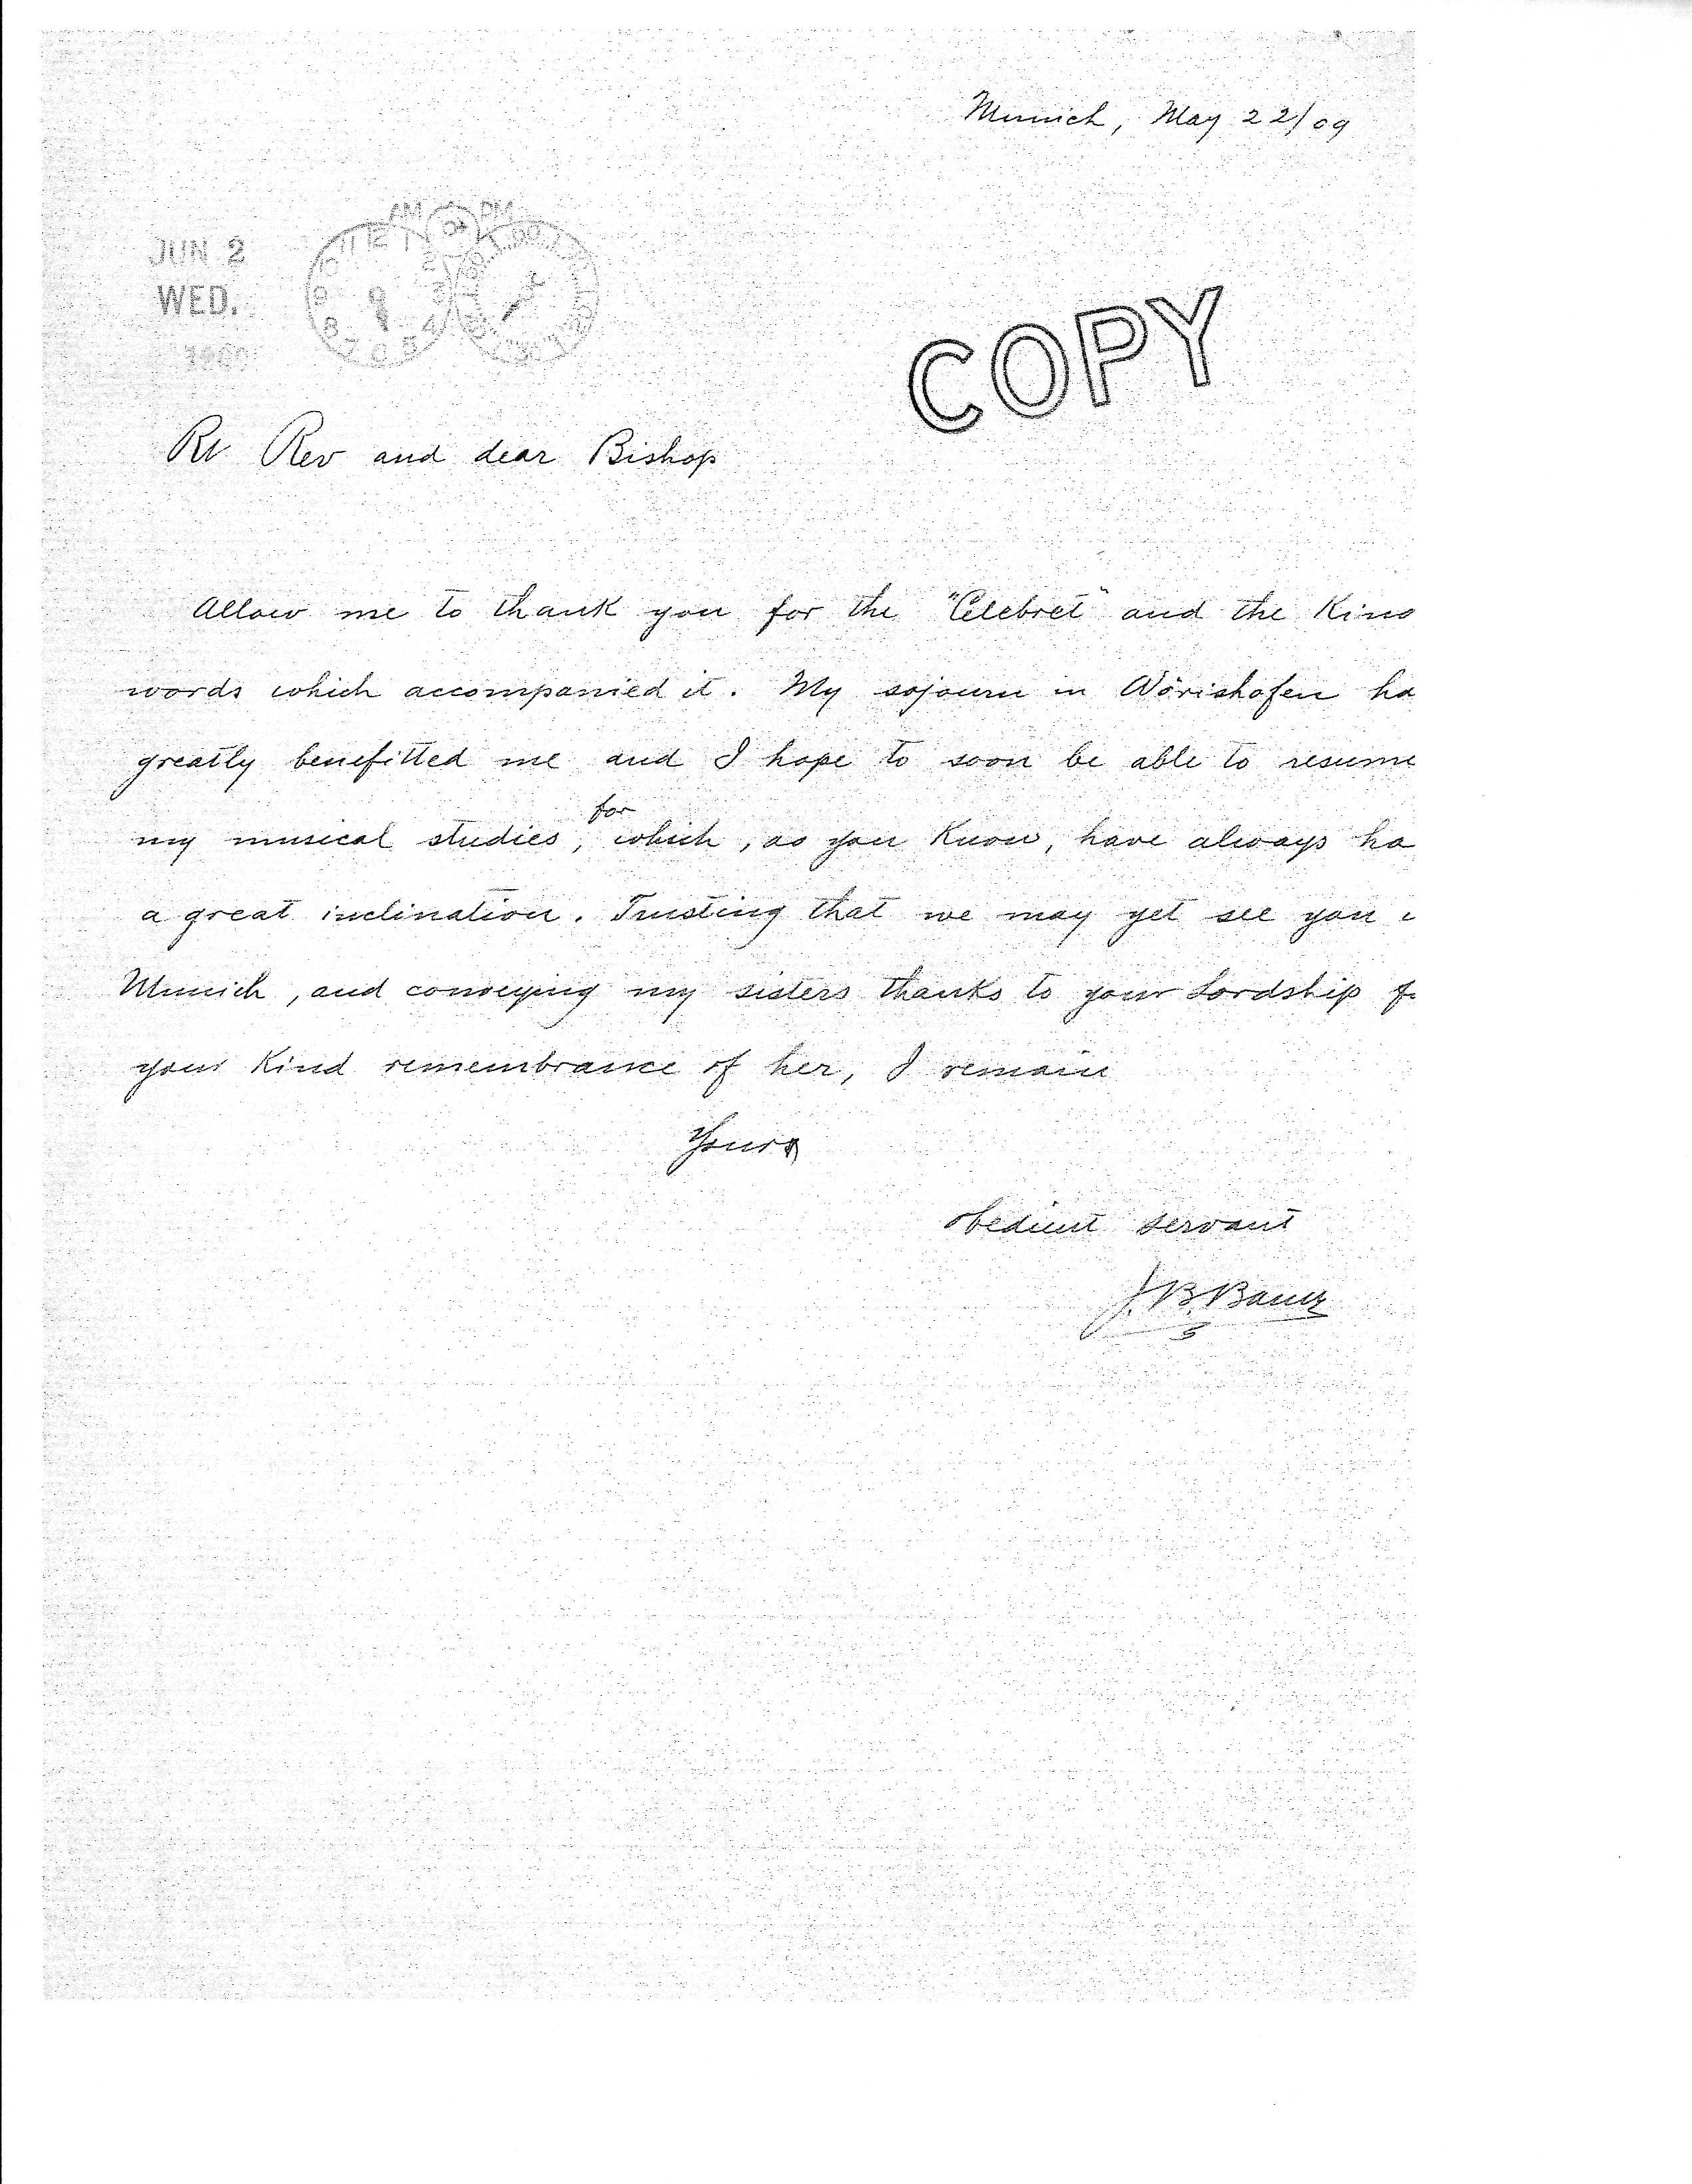 Munich, May 22/09
AM PM
JUN 2
WED.
COPY
Rt Rev and dear Bishop
Allow me to thank you for the "Celebret" and the Kind
words which accompanied it. My sojourn in Wörishofen ha
greatly benefitted me and I hope to soon be able to resume
for
my musical studies, which, as you Know, have always ha
a great inclination. Trusting that we may yet see you i
Munich, and conveying my sisters thanks to your Lordship fo
your Kind remembrance of her, I remain
Yours
obedient servant
J. B. Bauer